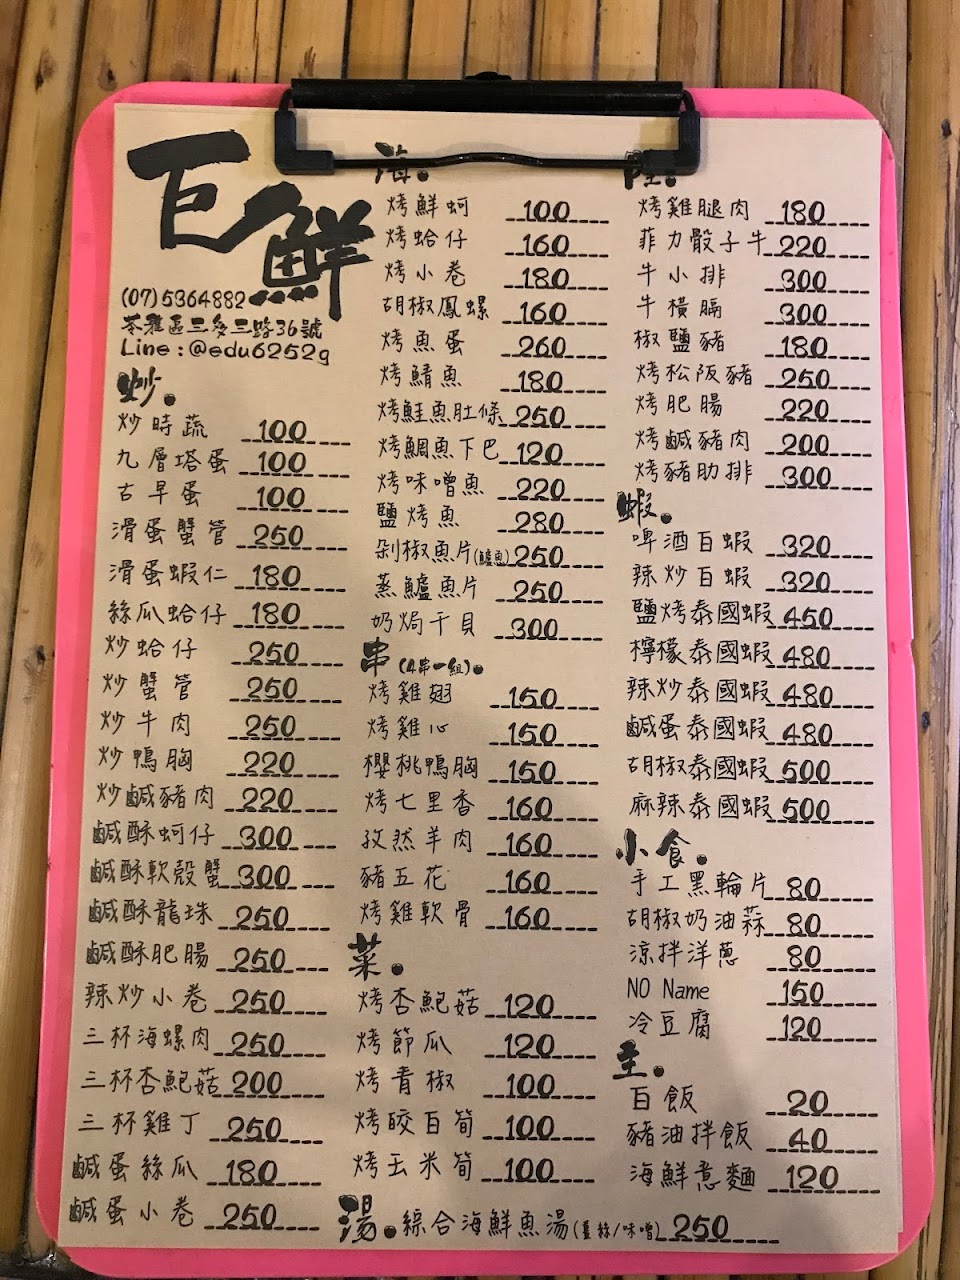 巨鮮
(07)5364882
苓雅區三多三路36號
Line : @edu6252g
炒.
炒時蔬 100
九層塔蛋 100
古早蛋 100
滑蛋蟹管 250
滑蛋蝦仁 180
絲瓜蛤仔 180
炒蛤仔 250
炒蟹管 250
炒牛肉 250
炒鴨胸 220
炒鹹豬肉 220
鹹酥蚵仔 300
鹹酥軟殼蟹 300
鹹酥龍珠 250
鹹酥肥腸 250
辣炒小卷 250
三杯海螺肉 250
三杯杏鮑菇 200
三杯雞丁 250
鹹蛋絲瓜 180
鹹蛋小卷 250
海.
烤鮮蚵 100
烤蛤仔 160
烤小卷 180
胡椒鳳螺 160
烤魚蛋 260
烤鯖魚 180
烤鮭魚肚條 250
烤鯛魚下巴 120
烤味噌魚 220
鹽烤魚 280
剁椒魚片(鱸魚) 250
蒸鱸魚片 250
奶焗干貝 300
串(4串一組).
烤雞翅 150
烤雞心 150
櫻桃鴨胸 150
烤七里香 160
孜然羊肉 160
豬五花 160
烤雞軟骨 160
菜.
烤杏鮑菇 120
烤節瓜 120
烤青椒 100
烤皎白筍 100
烤玉米筍 100
湯.綜合海鮮魚湯(薑絲/味噌) 250
陸.
烤雞腿肉 180
菲力骰子牛 220
牛小排 300
牛橫膈 300
椒鹽豬 180
烤松阪豬 250
烤肥腸 220
烤鹹豬肉 200
烤豬肋排 300
蝦.
啤酒白蝦 320
辣炒白蝦 320
鹽烤泰國蝦 450
檸檬泰國蝦 480
辣炒泰國蝦 480
鹹蛋泰國蝦 480
胡椒泰國蝦 500
麻辣泰國蝦 500
小食.
手工黑輪片 80
胡椒奶油蒜 80
涼拌洋蔥 80
NO Name 150
冷豆腐 120
主.
白飯 20
豬油拌飯 40
海鮮煮麵 120